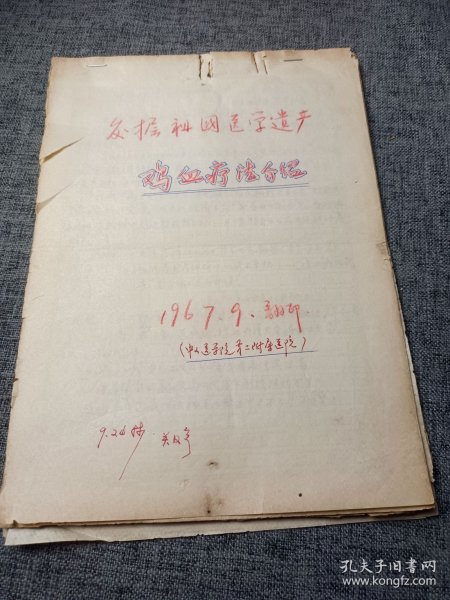 发掘祖国医学遗产
鸡血疗法介绍
1967.9.翻印
(中山医学院第二附属医院)
9.26
孔夫子旧书网
www.kongfz.com